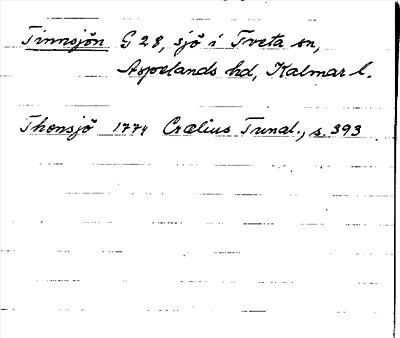 Tinnsjön G 28, sjö i Tveta sn,
Aspelands hd, Kalmar l.
Thensjö 1774 Crælius Tunal., s. 393